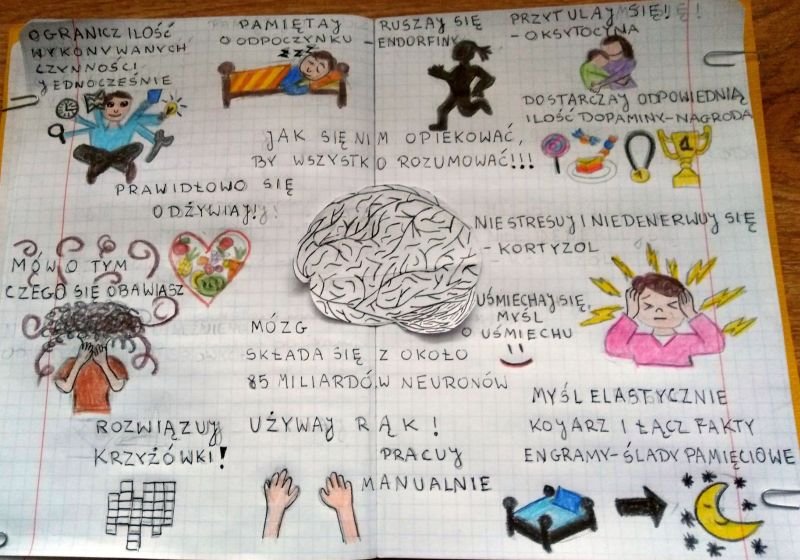 OGRANICZ ILOŚĆ
WYKONYWANYCH
CZYNNOŚCI
JEDNOCZEŚNIE
PAMIĘTAJ
O ODPOCZYNKU -
ZZZ
RUSZAJ SIĘ
- ENDORFINY
PRZYTULAJ SIĘ!
- OKSYTOCYNA
DOSTARCZAJ ODPOWIEDNIĄ
ILOŚĆ DOPAMINY-NAGRODA
1
JAK SIĘ NIM OPIEKOWAĆ,
BY WSZYSTKO ROZUMOWAĆ!!!
PRAWIDŁOWO SIĘ
ODŻYWIAJ!
MÓW O TYM
CZEGO SIĘ OBAWIASZ
NIE STRESUJ I NIEDENERWUJ SIĘ
- KORTYZOL
UŚMIECHAJ SIĘ,
MYŚL
O UŚMIECHU
MÓZG
SKŁADA SIĘ Z OKOŁO
85 MILIARDÓW NEURONÓW
ROZWIĄZUJ
KRZYŻÓWKI!
UŻYWAJ RĄK!
PRACUJ
MANUALNIE
MYŚL ELASTYCZNIE
KOJARZ I ŁĄCZ FAKTY
ENGRAMY-ŚLADY PAMIĘCIOWE